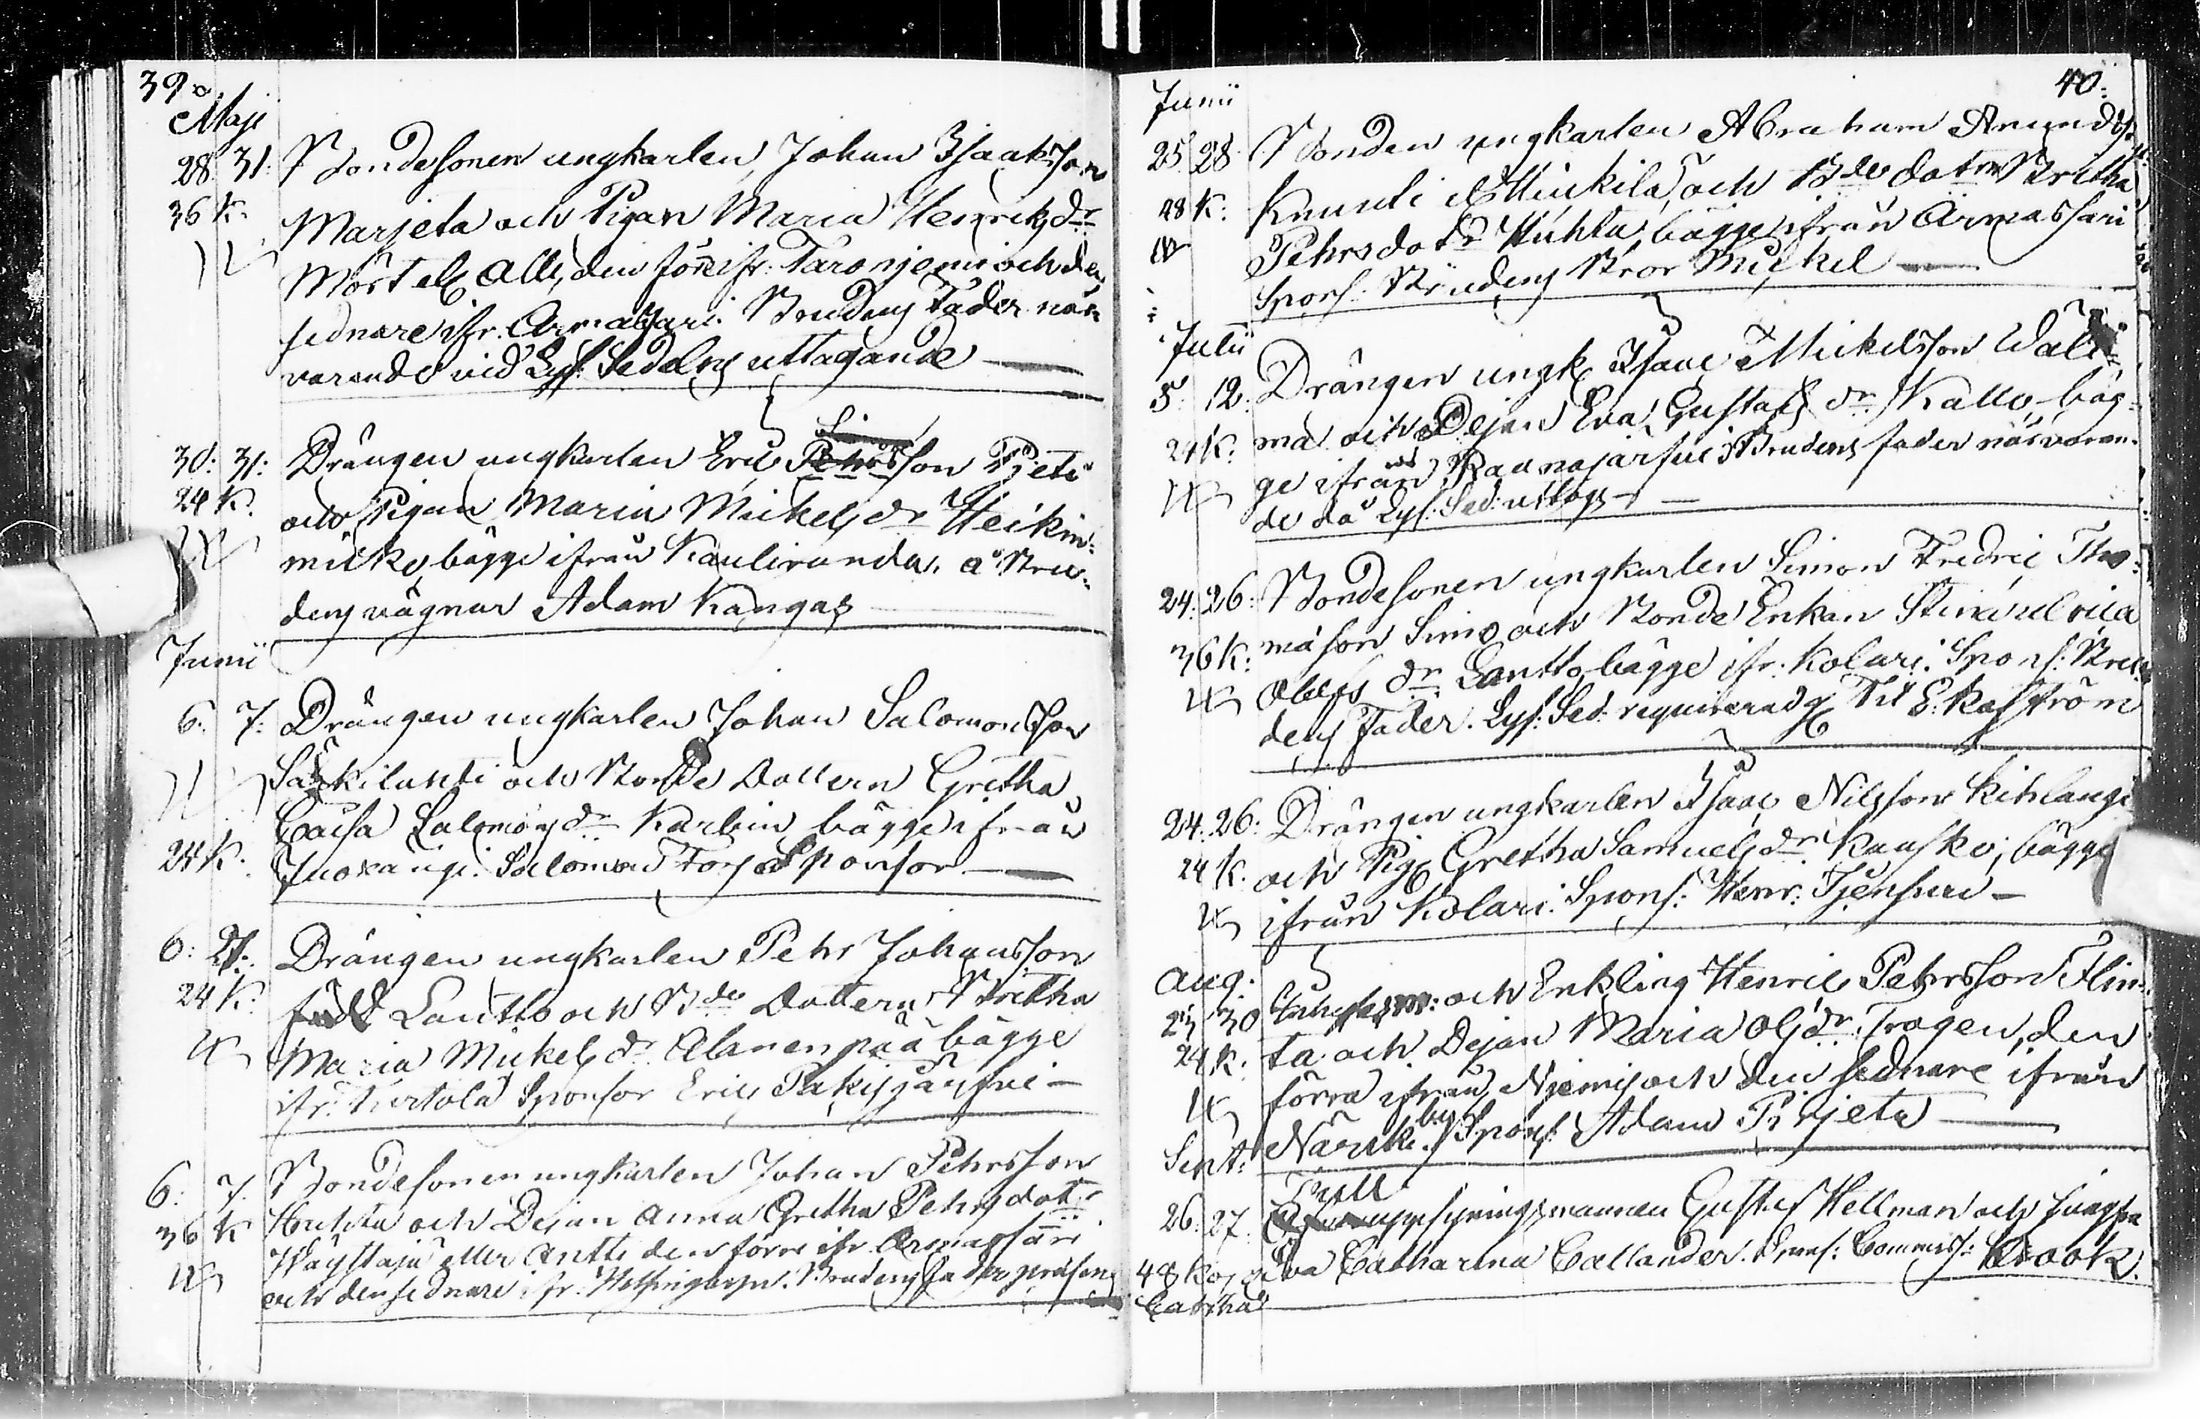 39.
Maji
28. 31. Bondesonen ungkarlen Johan Isaaksson
36 K. Marjeta och Pigan Maria Henriksdr
Mört el. Alli, den förre ifr. Taronjemi och den
sednare ifr. Armasjari. Brudens Fader när-
varande vid Lys. Sedelns uttagande
30. 31. Drängen ungkarlen Eric Pehrsson Pjeti
24 K. och Pigan Maria Mickelsdr Heikin-
mikko, bägge ifrån Kauliranda. å Bru-
dens vägnar Adam Kangas
Junii
6. 7. Drängen ungkarlen Johan Salomonsson
Säkilahti och Bonde Dottern Gretha
Caisa Salomonsdr Karbin bägge ifrån
24 K. Juoxangi. Salomon Fors Sponsor
6. 7. Drängen ungkarlen Pehr Johansson
24 K. Lantto och Bde Dottern Britha
Maria Mickelsdr Alanenpää bägge
ifr. Kertola Sponsor Eric Pakisjärfvi
6. 7. Bondesonen ungkarlen Johan Pehrsson
36 K Huhta och Dejan Anna Gretha Pehrsdotr
Waystaja eller Antti den förre ifr. Armassari
och den sednare ifr. Helsingbyn. Brudens fader präsens
40.
Junii
25 28 Bonden ungkarlen Abraham Amundss.
48 K. Knuuti el. Miukila, och Bde dotrn Britha
Pehrsdotr Huhta, bägge ifrån Armassari
Spons. Brudens Bror Mickel
Julii
5. 12. Drängen ungk. Isaac Mickelsson
24 K. ma och Dejan Eva Gustafsdr Kallo, bäg-
ge ifrån Raunajärfvi Brudens fader närvaran-
de då Lys. Sed. uttogs
24. 26. Bondesonen ungkarlen Simon Fredric Tho-
36 K. mason Simo och Bonde Enkan Stina Ulrica
Olofsdr Lantto, bägge ifr. Kolari. Spons. Bru-
dens Fader. Lys. Sed. Til E. Kasström
24. 26. Drängen ungkarlen Isaac Nilsson Kihlangi
24 K. och Pig. Gretha Samuelsdr Kaasko, bägge
ifrån Kolari. Spons. Henr.
Aug.
23 30 och Enkling Henric Pehrsson Flin-
24 K. ta och Dejan Maria Olsdr Tragen, den
förra ifrån Njemis och den sednare ifrån
Närikby Spons. Adam Pirjeta
Sept.
Tull
26. 27. uppsyningsmannen Gustaf Hellman och Jungfru
48 K Eva Catharina Callander. Commiss. Brook.